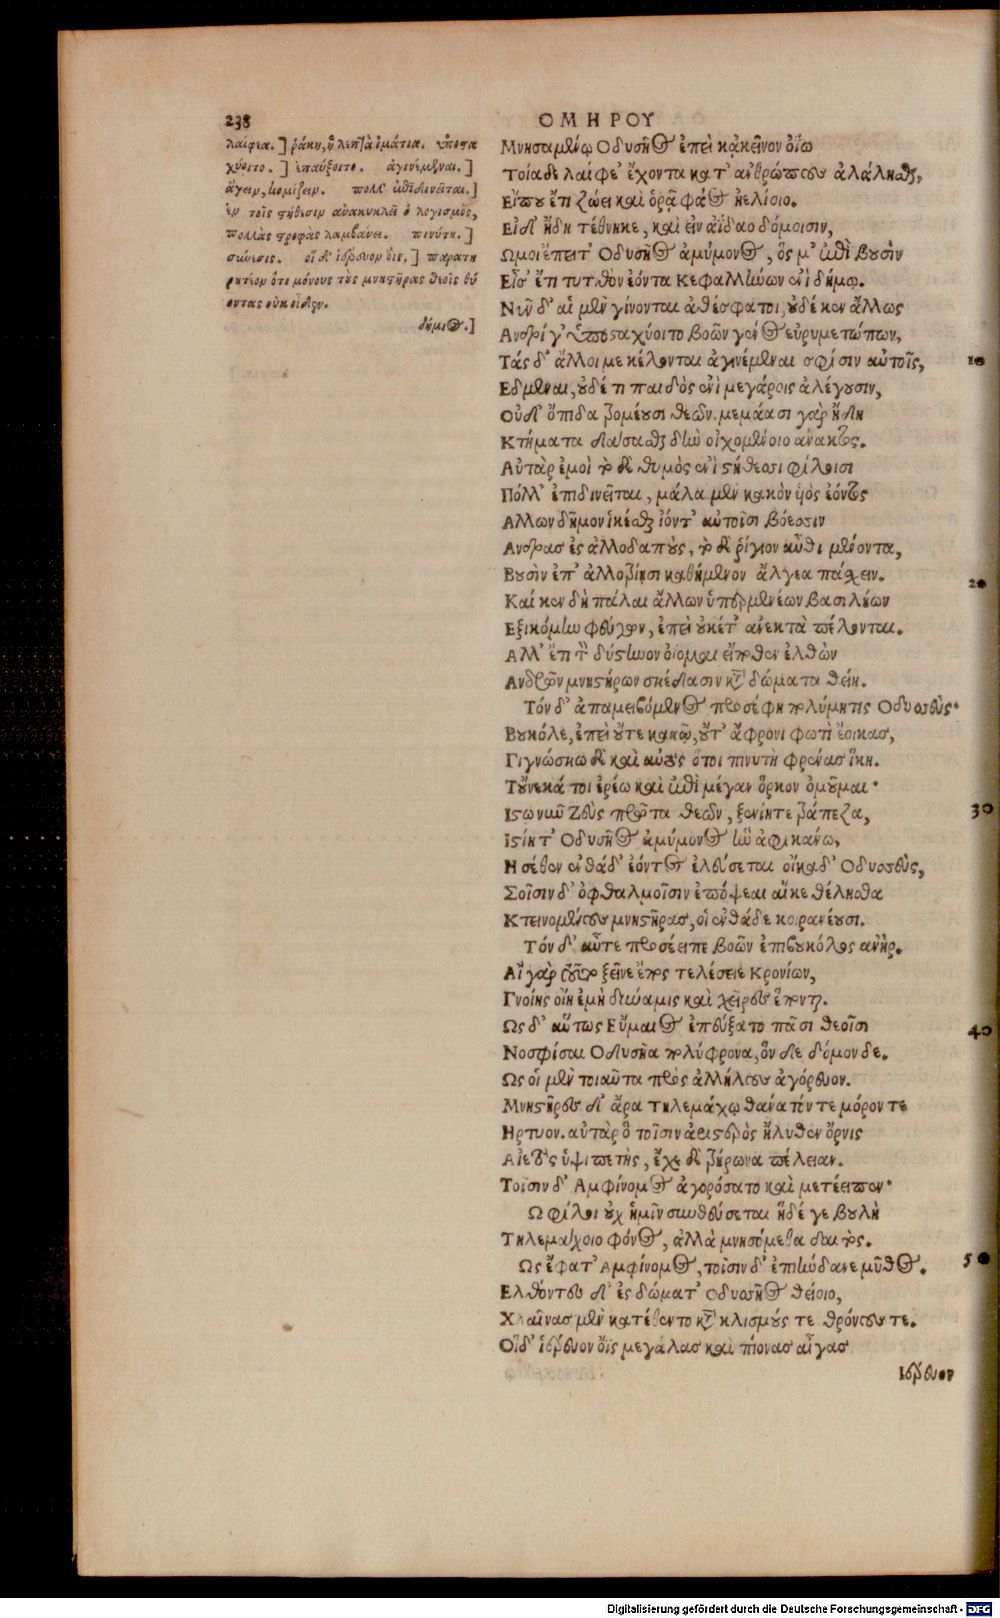 238
ΟΜΗΡΟΥ
λαίφεα.] ῥάκη, ἢ λεπτὰ ἱμάτια. ὑποστα
χύοιτο.] ἐπαύξοιτο. ἀγινέμεναι.]
ἄγειν, κομίζειν. πολλ' ἐπιδινεῖται.]
ἐν τοῖς στήθεσιν ἀνακυκλεῖ ὁ λογισμὸς,
πολλὰς στροφὰς λαμβάνει. πινύτη.]
σύνεσις. οἱ δ' ἱέρευον ὄϊς.] παρατη
ρητέον ὅτι μόνους τοὺς μνηστῆρας θεοῖς θύ
οντας οὐκ οἶδεν.
δήμιος.]
Μνησαμένῳ Οδυσῆος ἐπεὶ κᾀκεῖνον ὀΐω
Τοιάδε λαίφε' ἔχοντα κατ' ἀνθρώπους ἀλάλησθαι,
Εἴπου ἔτι ζώει καὶ ὁρᾷ φάος ἠελίοιο.
Εἰ δ' ἤδη τέθνηκε, καὶ εἰν ἀΐδαο δόμοισιν,
Ωμοι ἔπειτ' Οδυσῆος ἀμύμονος, ὅς μ' ἐπὶ βουσὶν
Εἷσ' ἔτι τυτθὸν ἐόντα Κεφαλλήνων ἐνὶ δήμῳ.
Νῦν δ' αἱ μὲν γίνονται ἀθέσφατοι, οὐδέ κεν ἄλλως
Ανδρί γ' ὑποσταχύοιτο βοῶν γένος εὐρυμετώπων,
Τάς δ' ἄλλοι με κέλονται ἀγινέμεναι σφίσιν αὐτοῖς, 10
Εδμεναι, οὐδέ τι παιδὸς ἐνὶ μεγάροις ἀλέγουσιν,
Οὐδ' ὄπιδα τρομέουσι θεῶν. μεμάασι γὰρ ἤδη
Κτήματα δάσασθαι δὴν οἰχομένοιο ἄνακτος.
Αὐτὰρ ἐμοὶ τόδε θυμὸς ἐνὶ στήθεσσι φίλοισι
Πόλλ' ἐπιδινεῖται, μάλα μὲν κακὸν υἷος ἐόντος
Αλλων δῆμον ἱκέσθαι ἰόντ' αὐτοῖσι βόεσσιν
Ανδρας ἐς ἀλλοδαπούς, τὸ δὲ ῥίγιον αὖθι μένοντα,
Βουσὶν ἐπ' ἀλλοτρίῃσι καθήμενον ἄλγεα πάσχειν. 20
Καί κεν δὴ πάλαι ἄλλων ὑπερμενέων βασιλήων
Εξικόμην φεύγων, ἐπεὶ οὐκέτ' ἀνεκτὰ πέλονται.
Αλλ' ἔτι τὸν δύστηνον ὀΐομαι εἴποθεν ἐλθὼν
Ανδρῶν μνηστήρων σκέδασιν κατὰ δώματα θείη.
Τόν δ' ἀπαμειβόμενος προσέφη πολύμητις Οδυσσεύς·
Βουκόλε, ἐπεὶ οὔτε κακῷ, οὔτ' ἄφρονι φωτὶ ἔοικας,
Γιγνώσκω δὲ καὶ αὐτὸς ὅτοι πινυτὴ φρένας ἵκη.
Τοὔνεκά τοι ἐρέω καὶ ἐπὶ μέγαν ὅρκον ὀμοῦμαι·
Ιστω νῦν Ζεὺς πρῶτα θεῶν, ξενίη τε τράπεζα, 30
Ιστίη τ' Οδυσῆος ἀμύμονος ἣν ἀφικάνω,
Η σέθεν ἐνθάδ' ἐόντος ἐλεύσεται οἴκαδ' Οδυσσεὺς,
Σοῖσιν δ' ὀφθαλμοῖσιν ἐπόψεαι αἴκε θέλησθα
Κτεινομένους μνηστῆρας, οἱ ἐνθάδε κοιρανέουσι.
Τόν δ' αὖτε προσέειπε βοῶν ἐπιβουκόλος ἀνήρ.
Αἲ γὰρ τοῦτο ξεῖνε ἔπος τελέσειε Κρονίων,
Γνοίης οἵη ἐμὴ δύναμις καὶ χεῖρες ἕπονται.
Ως δ' αὔτως Εὔμαιος ἐπεύξατο πᾶσι θεοῖσι 40
Νοστῆσαι Οδυσῆα πολύφρονα, ὅν δε δόμον δε.
Ως οἱ μὲν τοιαῦτα πρὸς ἀλλήλους ἀγόρευον.
Μνηστῆρες δ' ἄρα τηλεμάχῳ θάνατόν τε μόρον τε
Ηρτυον. αὐτὰρ ὃ τοῖσιν ἀριστερὸς ἤλυθεν ὄρνις
Αἰετὸς ὑψιπετὴς, ἔχε δὲ τρήρωνα πέλειαν.
Τοῖσιν δ' Αμφίνομος ἀγορήσατο καὶ μετέειπεν·
Ω φίλοι οὐχ ἡμῖν συνθεύσεται ἥδέ γε βουλὴ
Τηλεμάχοιο φόνος, ἀλλὰ μνησόμεθα δαιτός.
Ως ἔφατ' Αμφίνομος, τοῖσιν δ' ἐπιήνδανε μῦθος. 50
Ελθόντες δ' ἐς δώματ' Οδυσσῆος θείοιο,
Χλαίνας μὲν κατέθεντο κατὰ κλισμούς τε θρόνους τε.
Οἳ δ' ἱέρευον ὄϊς μεγάλας καὶ πίονας αἶγας
Ιέρευον
Digitalisierung gefördert durch die Deutsche Forschungsgemeinschaft - DFG